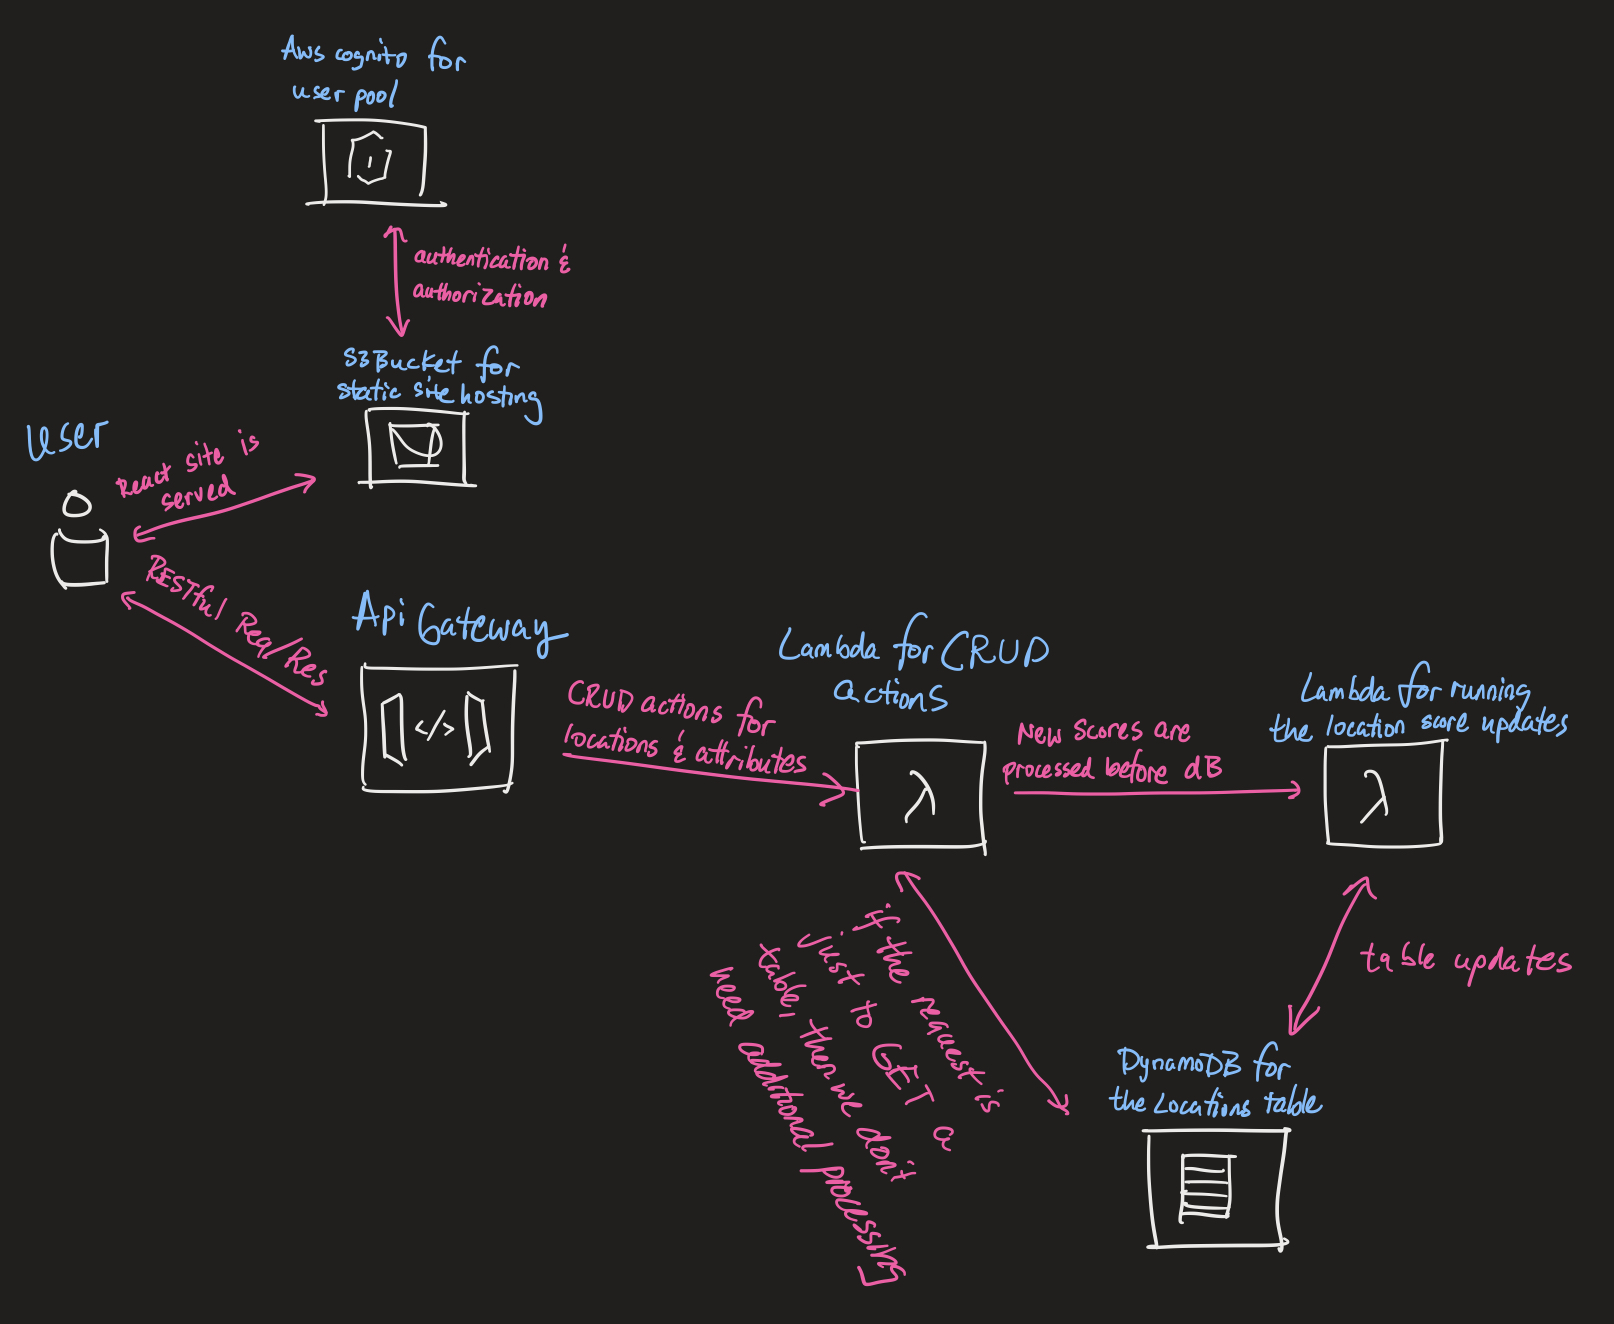 Aws cognito for
user pool
authentication &
authorization
S3 Bucket for
static site hosting
user
React site is
served
RESTful Req/Res
Api Gateway
</>
CRUD actions for
locations & attributes
Lambda for CRUD
actions
λ
New scores are
processed before dB
Lambda for running
the location score updates
λ
if the request is
just to GET a
table, then we don't
need additional processing
table updates
DynamoDB for
the Locations table